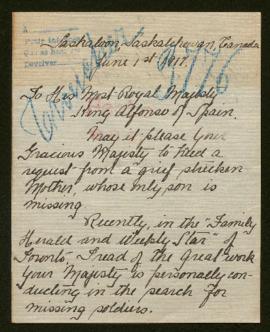 Saskatoon, Saskatchewan, Canada
June 1st 1917.
To His Most Royal Majesty
King Alfonso of Spain.
May it please your
Gracious Majesty to heed a
request from a grief stricken
Mother, whose only son is
missing.
Recently, in the "Family
Herald and Weekly Star" of
Toronto, I read of the great work
Your Majesty is personally con-
ducting in the search for
missing soldiers.